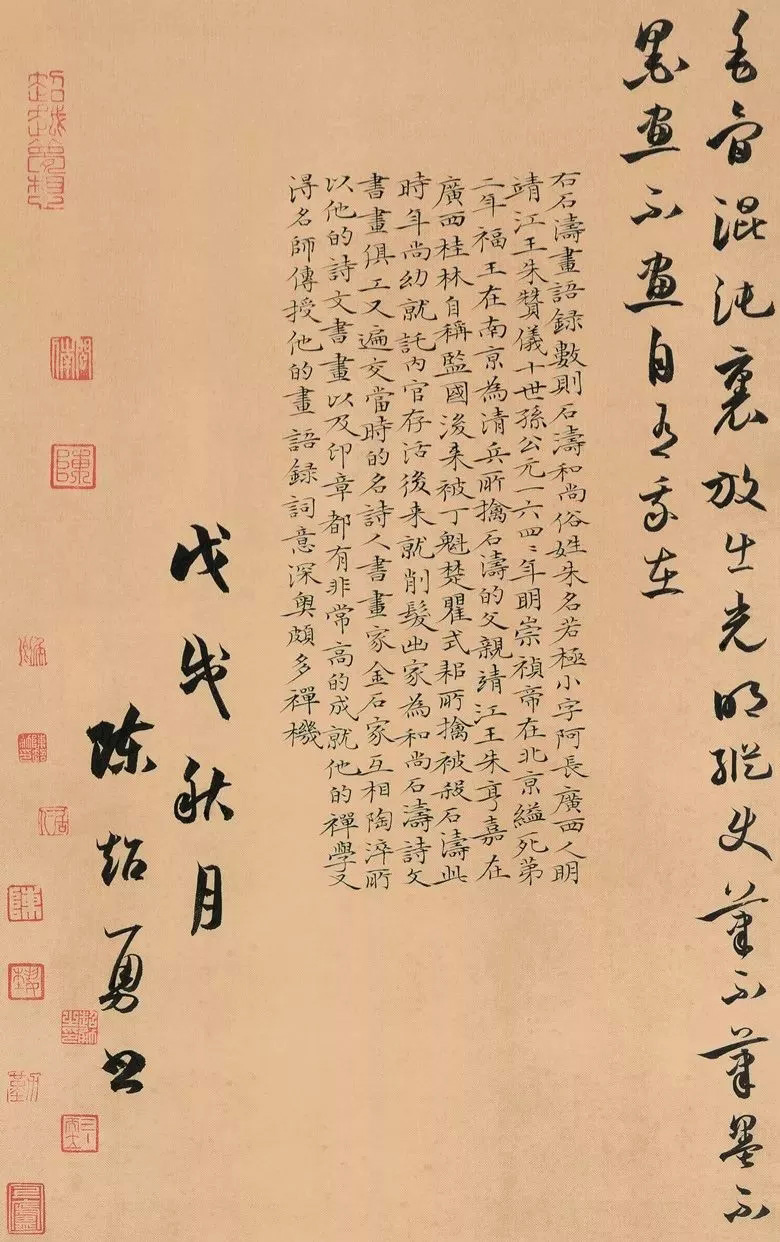 毛骨混沌裏放出光明縱使筆不筆墨不
墨畫不畫自有我在
右石濤畫語録數則石濤和尚俗姓朱名若極小字阿長廣西人明
靖江王朱贊儀十世孫公元一六四〻年明崇禎帝在北京縊死第
二年福王在南京為清兵所擒石濤的父親靖江王朱亨嘉在
廣西桂林自稱監國後来被丁魁楚瞿式耜所擒被殺石濤此
時年尚幼就託內官存活後来就削髮出家為和尚石濤詩文
書畫俱工又遍交當時的名詩人書畫家金石家互相陶淬所
以他的詩文書畫以及印章都有非常高的成就他的禪學又
得名師傳授他的畫語録詞意深奥頗多禪機
戊戌秋月
陈勇书
陳
陳